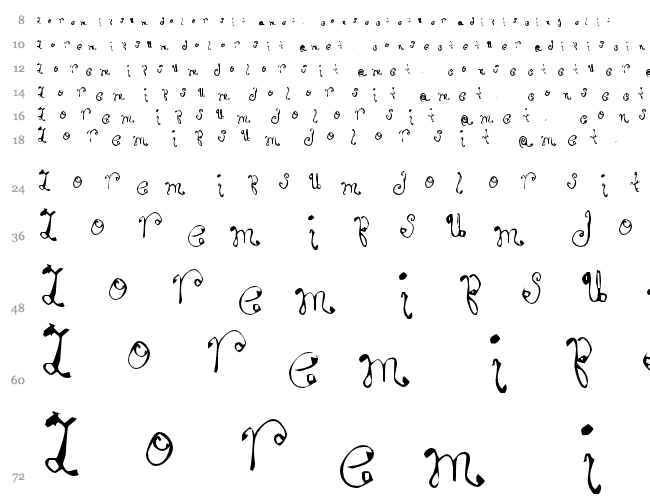 8 Lorem ipsum dolor sit amet, consectetur adipiscing elit
10 Lorem ipsum dolor sit amet, consectetuer adipiscin
12 Lorem ipsum dolor sit amet, consectetuer a
14 Lorem ipsum dolor sit amet, consect
16 Lorem ipsum dolor sit amet, cons
18 Lorem ipsum dolor sit amet,
24 Lorem ipsum dolor sit
36 Lorem ipsum do
48 Lorem ipsu
60 Lorem ip
72 Lorem i